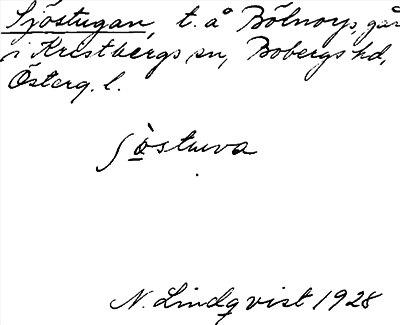 Sjöstugan, t. å Bölnorps gård
i Kristbergs sn, Bobergs hd,
Österg. l.
sjòstuva
N. Lindqvist 1928